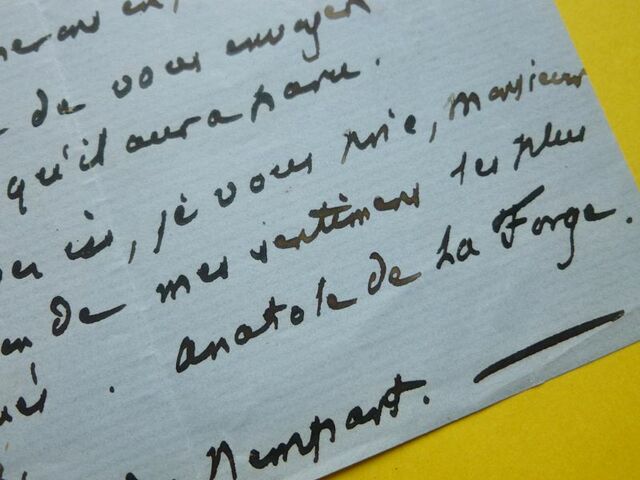 de vous envoyer
qu'il aura paru.
ici, je vous prie, Monsieur
de mes sentiments les plus
Anatole de La Forge.
Rempart.